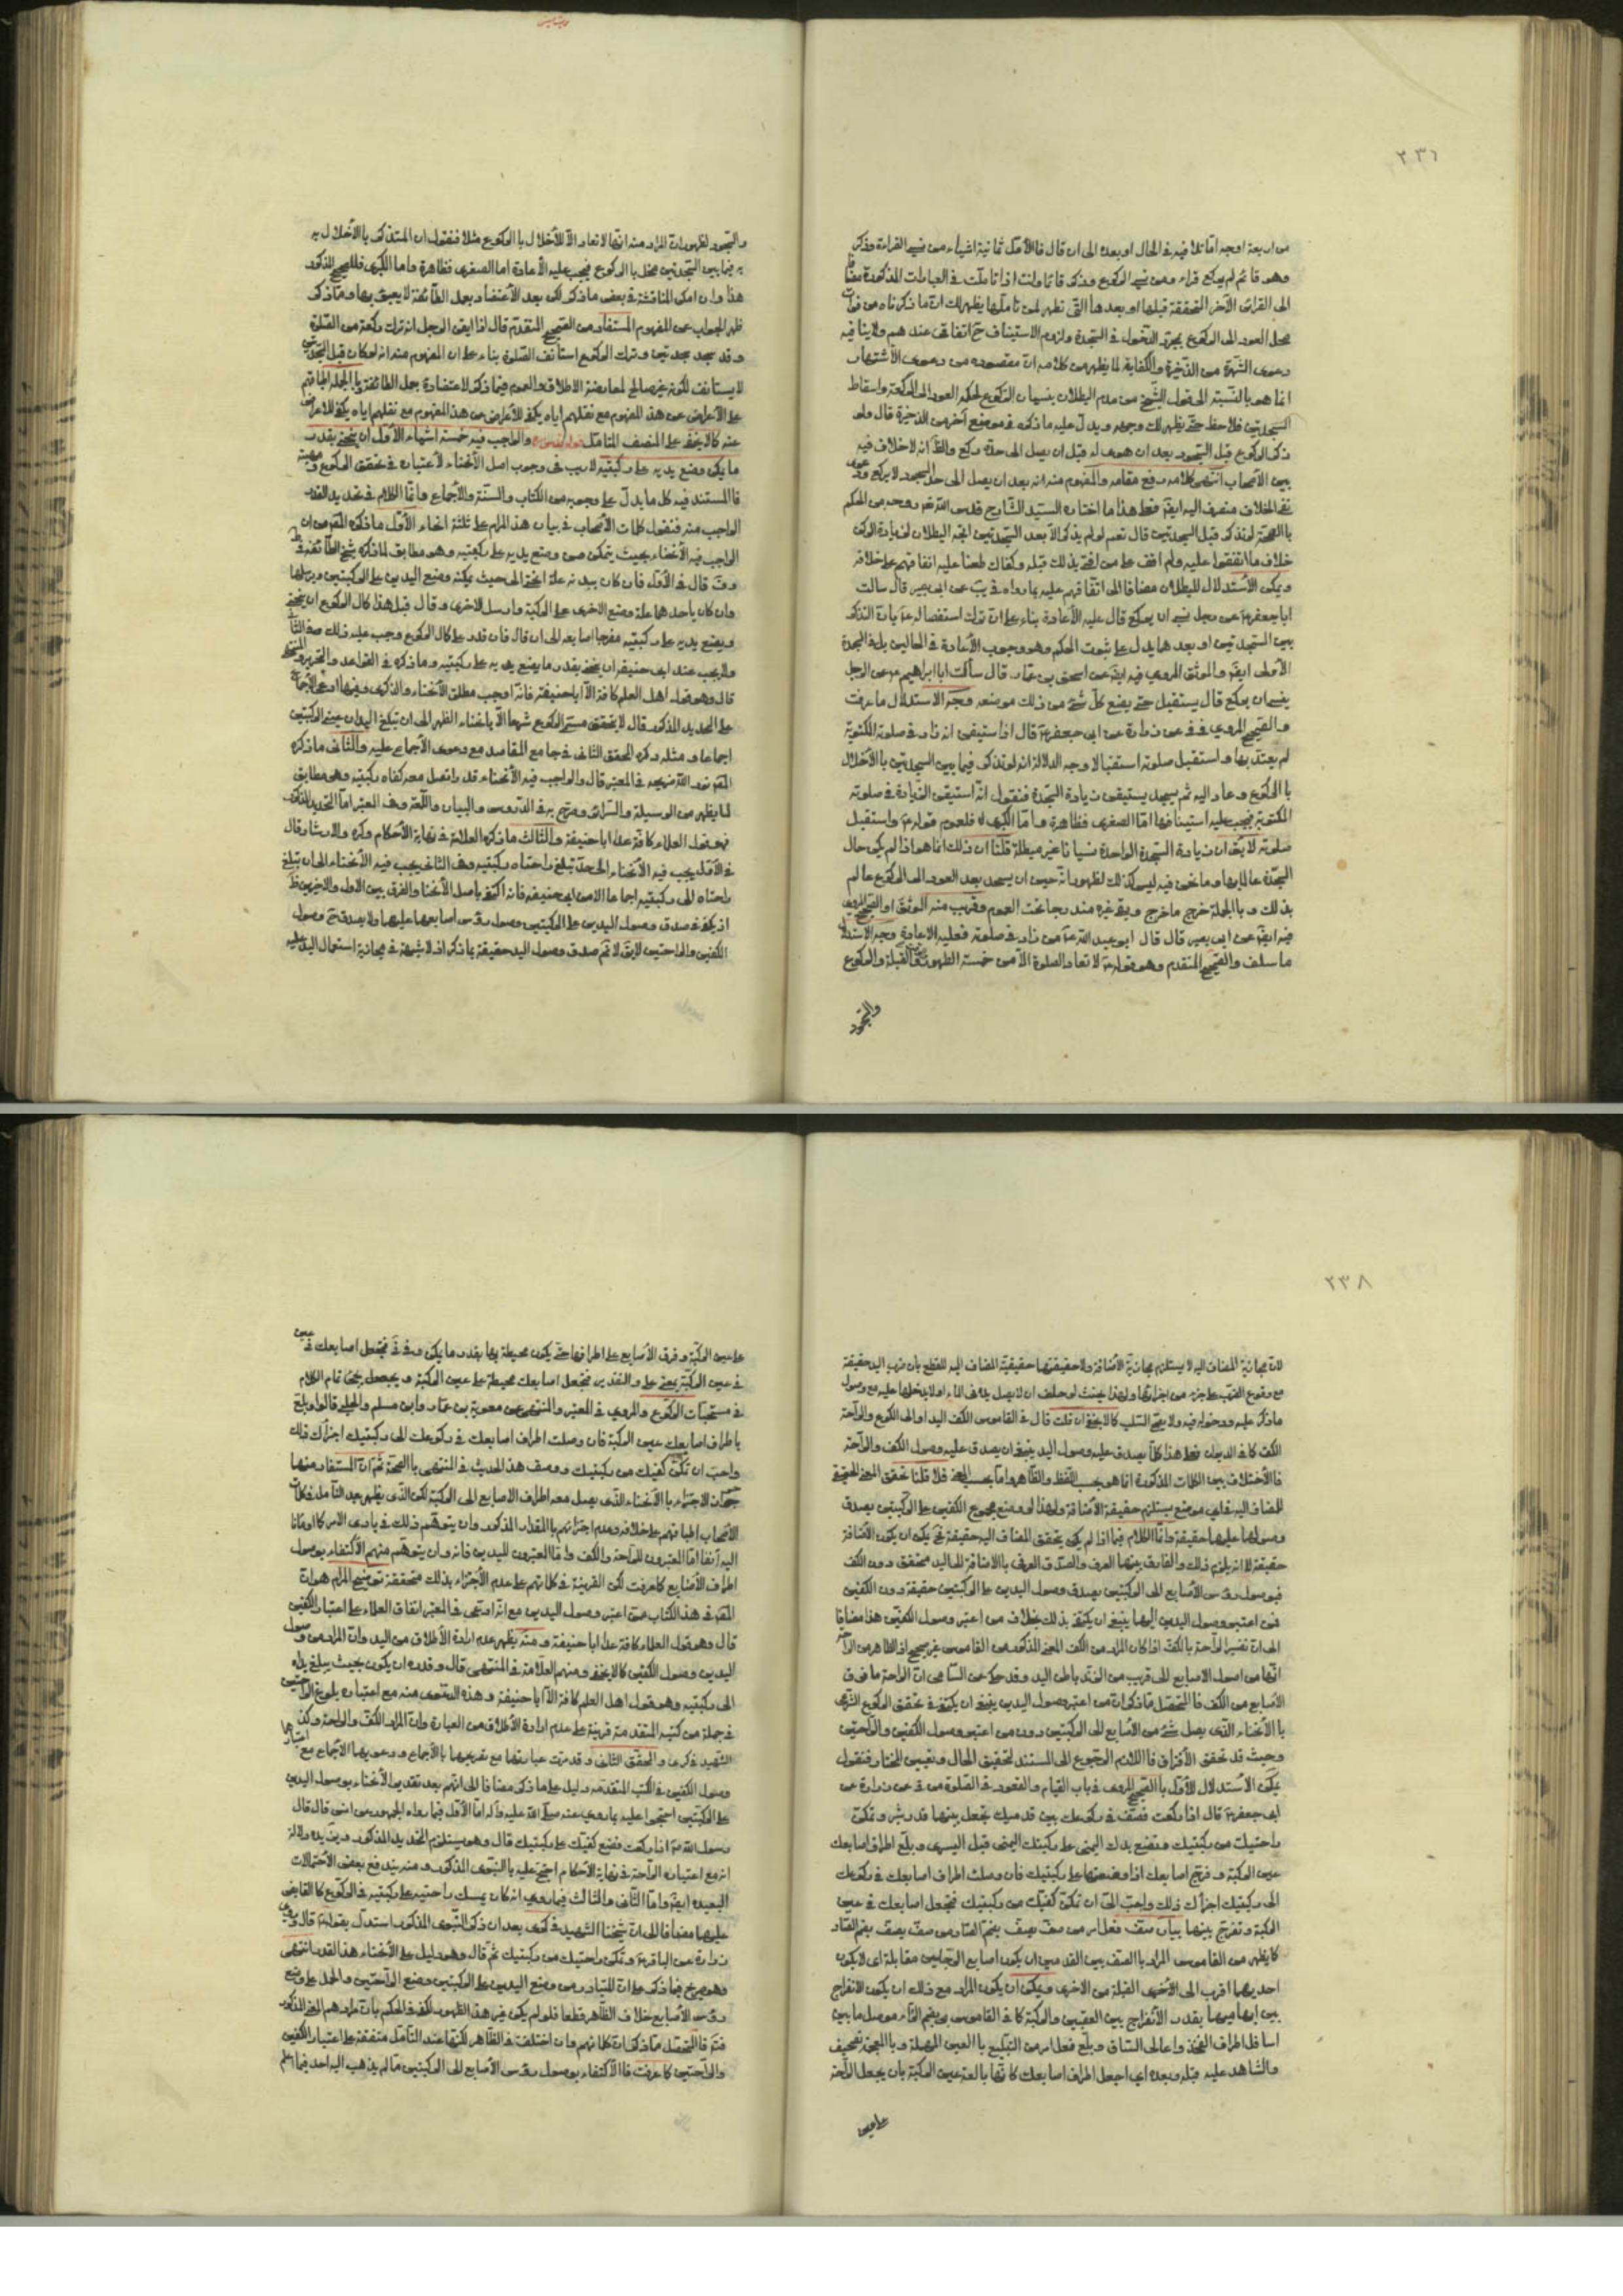 ٢٣٦
من اربعة اوجه اما تلافيه في الحال او بعده الى ان قال فالاول ثمانية اشياء من نسي القراءة وذكر
وهو قائم لم يركع قراء ومن نسي الركوع وذكر قائما وانت اذا تاملت في العبارات المذكورة
الى القرائن الأخر المتحققة قبلها او بعدها التي تظهر لمن تاملها يظهر لك ان ما ذكرناه من فوات
محل العود الى الركوع بمجرد الدخول في السجدة ولزوم الاستيناف ح اتفاقي عندهم ولا ينافيه
دعوى الشهرة من الذخيرة والكفاية لما يظهر من كلامه ان مقصوده من دعوى الأشتهار
انما هو بالنسبة الى قول الشيخ من عدم البطلان بنسيان الركوع لحكمه العود الى الركعة واسقاط
السجدتين فلاحظ حتى يظهر لك وجهه ويدل عليه ما ذكره في موضع آخر من الذخيرة قال ولو
ذكر الركوع قبل السجود بعد ان هوى له قبل ان يصل الى حده ركع والظ انه لا خلاف فيه
بين الأصحاب انتهى كلامه رفع مقامه والمفهوم منه انه بعد ان يصل الى حد السجود لا يركع ودعوى
نفي الخلاف منصرف اليه ايضا فعلى هذا ما اختاره السيد الشارح قدس الله روحه من الحكم
بالصحة لو تذكر قبل السجدتين قال نعم لو لم يذكر الا بعد السجدتين اتجه البطلان لزيادة الركن
خلاف ما اتفقوا عليه ولم اقف على من افتى بذلك قبله وكفاك طعنا عليه اتفاقهم على خلافه
ويمكن الأستدلال للبطلان مضافا الى اتفاقهم عليه بما رواه في يب عن ابي بصير قال سالت
ابا جعفر ع عن رجل نسي ان يركع قال عليه الأعادة بناء على ان ترك استفصاله ع
بين السجدتين او بعدهما يدل على ثبوت الحكم وهو وجوب الأعادة في الحالين
الأولى ايضا والموثق المروي فيه ايضا عن اسحق بن عمار قال سألت ابا ابراهيم ع عن الرجل
ينسى ان يركع قال يستقبل حتى يضع كل شئ من ذلك موضعه وجه الاستدلال ما عرفت
والصحيح المروي في في عن زرارة عن ابي جعفر ع قال اذا استيقن انه زاد في صلوته المكتوبة
لم يعتد بها واستقبل صلوته استقبالا وجه الدلالة انه لو تذكر فيما بين السجدتين بالأخلال
بالركوع وعاد اليه ثم سجد يستيقن زيادة السجدة فنقول انه استيقن الزيادة في صلوته
المكتوبة فيجب عليه استينافها اما الصغرى فظاهرة واما الكبرى فلعموم قوله ع واستقبل
صلوته لا يق ان زيادة السجدة الواحدة نسيانا غير مبطلة قلنا ان ذلك انما هو اذا لم يكن حال
السجدة عالما بها وما نحن فيه ليس كذلك لظهور انه حين ان يسجد بعد العود الى الركوع عالم
بذلك وبالجملة خرج ما خرج وبقي غيره مندرجا تحت العموم وقريب منه الموثق او الصحيح المروي
فيه ايضا عن ابي بصير قال قال ابو عبد الله ع من زاد في صلوته فعليه الاعادة وجه الاستدلال
ما سلف والصحيح المتقدم وهو قوله ع لا تعاد الصلوة الا من خمسة الطهور والقبلة والركوع
والسجود
والسجود لظهور ان المراد منه انها لا تعاد الا للأخلال بالركوع مثلا فنقول ان المتذكر بالأخلال به
به فيما بين السجدتين مخل بالركوع فيجب عليه الأعادة اما الصغرى فظاهرة واما الكبرى فللصحيح المذكور
هذا وان امكن المناقشة في بعض ما ذكر لكن بعد الأعتضاد بعمل الطائفة لا يعبؤ بها ومما ذكر
ظهر الجواب عن المفهوم المستفاد من الصحيح المتقدم قال اذا ايقن الرجل انه ترك ركعة من الصلوة
وقد سجد سجدتين وترك الركوع استانف الصلوة بناء على ان المفهوم منه انه لو كان قبل السجدتين
لا يستانف لكونه غير صالح لمعارضة الاطلاق والعموم فيما ذكر لاعتضاده بعمل الطائفة وبالجملة اطباقهم
على الأعراض عن هذا المفهوم مع نقلهم اياه يكفي للأعراض عن هذا المفهوم مع نقلهم اياه يكفي للاعراض
عنه كما لا يخفى على المنصف المتامل والواجب فيه خمسة اشياء الأول ان ينحني بقدر
ما يمكن وضع يديه على ركبتيه لا ريب في وجوب اصل الأنحناء لأعتباره في تحقق الركوع
فالمستند فيه كل ما يدل على وجوبه من الكتاب والسنة والأجماع وانما الكلام في تحديد القدر
الواجب منه فنقول كلمات الأصحاب في بيان هذا المرام على ثلثة انحاء الأول ما ذكره المص من ان
الواجب فيه الأنحناء بحيث يتمكن من وضع يديه على ركبتيه وهو مطابق لما ذكره شيخ الطائفة في
وف قال في الأول فان كان بيديه علة انحنى الى حيث يمكنه وضع اليدين على الركبتين ويرسلها
وان كان باحدهما علة وضع الاخرى على الركبة وارسل الاخرى وقال قبل هذا كمال الركوع ان ينحني
ويضع يديه على ركبتيه مفرجا اصابعه الى ان قال فان قدر على كمال الركوع وجب عليه ذلك
ولا يجب عند ابي حنيفة ان ينحني بقدر ما يضع يديه على ركبتيه وما ذكره في القواعد والتحرير
قال وهو قول اهل العلم كافة الا ابا حنيفة فانه اوجب مطلق الأنحناء والذكرى وفيها ادعى الأجماع
على التحديد المذكور قال لا يتحقق مسمى الركوع شرعا الا بانحناء الظهر الى ان تبلغ اليدان عيني الركبتين
اجماعا ومثله ذكره المحقق الثاني في جامع المقاصد مع دعوى الأجماع عليه والثاني ما ذكره
المص نور الله ضريحه في المعتبر قال والواجب فيه الأنحناء قدرا تصل معه كفاه ركبتيه وهو مطابق
لما يظهر من الوسيلة والسرائر وصرح به في الدروس والبيان واللمعة وفي المعتبر اما التحديد المذكور
فهو قول العلماء كافة عدا ابا حنيفة والثالث ما ذكره العلامة في نهاية الأحكام وكره والارشاد قال
في الأول يجب فيه الأنحناء الى حد تبلغ راحتاه ركبتيه وفي الثاني يجب فيه الأنحناء الى ان تبلغ
راحتاه الى ركبتيه اجماعا الا من ابي حنيفة فانه اكتفى باصل الأنحناء والفرق بين الاول والاخيرين ظ
اذ يكفي في صدق وصول اليدين على الركبتين وصول رؤس أصابعهما عليهما ولا يصدق ح وصول
الكفين والراحتين لايق لا نم صدق وصول اليد حقيقة بما ذكر اذ لا شبهة في مجازية استعمال اليد عليه
٢٣٨
لان مجازية المضاف اليه لا يستلزم مجازية الأضافة ولا حقيقتها حقيقية المضاف اليه للقطع بان ضرب اليد حقيقة
مع وقوع الضرب على جزء من اجزائها ولهذا يحنث لو حلف ان لا يصل يده في الماء او لا يدخلها عليه مع وصول
ما ذكر عليه ودخوله فيه ولا يصح السلب كما لا يخفى ان قلت قال في القاموس الكف اليد او الى الكوع والراحة
الكف كما في الديوان فعلى هذا كلما يصدق عليه وصول اليد ينبغي ان يصدق عليه وصول الكف والراحة
فالأختلاف بين الكلمات المذكورة انما هو بحسب اللفظ والظاهر واما بحسب المعنى فلا قلنا تحقق المعنى الحقيقي
للمضاف اليه في اي موضع يستلزم حقيقة الأضافة ولهذا لو وضع مجموع الكفين على الركبتين يصدق
وصولها عليهما حقيقة وانما الكلام فيما اذا لم يكن يتحقق المضاف اليه حقيقة فح يمكن ان يكون الأضافة
حقيقة لا انه يلزم ذلك والفارق بينهما العرف والصدق العرفي بالاضافة الى اليد متحقق دون الكف
فبوصول رؤس الأصابع الى الركبتين يصدق وصول اليدين على الركبتين حقيقة دون الكفين
فمن اعتبر وصول اليدين اليهما ينبغي ان يكتفي بذلك بخلاف من اعتبر وصول الكفين هذا مضافا
الى ان تفسير الراحة بالكف اذا كان المراد من الكف المعنى المذكور من القاموس غير صحيح اذ الظاهر من الراحة
انها من اصول الاصابع الى قريب من الزند باطن اليد وقد حكي عن السامي ان الراحة ما فوق
الأصابع من الكف فالمتحصل مما ذكر ان من اعتبر وصول اليدين ينبغي ان يكتفي في تحقق الركوع الشرعي
بالأنحناء الذي يصل شئ من الأصابع الى الركبتين دون من اعتبر وصول الكفين والراحتين
وحيث قد تحقق الأفتراق فاللازم الرجوع الى المستند لتحقيق الحال وتعيين المختار فنقول
يمكن الأستدلال للأول بالصحيح المروي في باب القيام والقعود في الصلوة من في عن زرارة عن
ابي جعفر ع قال اذا ركعت فصف في ركوعك بين قدميك تجعل بينهما قدر شبر وتمكن
راحتيك من ركبتيك وتضع يدك اليمنى على ركبتك اليمنى قبل اليسرى وبلع اطراف اصابعك
عين الركبة وفرج اصابعك اذا وضعتها على ركبتيك فان وصلت اطراف اصابعك في ركوعك
الى ركبتيك اجزأك ذلك واحب الي ان تمكن كفيك من ركبتيك فتجعل اصابعك في عين
الركبة وتفرج بينهما بيان صف فعل امر من صف يصف بضم الصاد
كما يظهر من القاموس المراد بالصف بين القدمين ان يكون اصابع الرجلين مقابلة اي لا يكون
احديهما اقرب الى الأخرى القبلة من الاخرى ويمكن ان يكون المراد مع ذلك ان يكون الانفراج
بين ابهاميهما بقدر الأنفراج بين العقبين والركبة كما في القاموس بضم الراء موصل ما بين
اسافل اطراف الفخذ واعالي الساق وبلع فعل امر من التبليع بالعين المهملة وبالمعجمة تصحيف
والشاهد عليه قبله وبعده اي اجعل اطراف اصابعك كانها بالعة عين الركبة بان يجعل الراحة
على عين
على عين الركبة وفرق الأصابع على اطرافها حتى يكون محيطة بها بقدر ما يمكن وفي في فتجعل اصابعك في عين
في عين الركبة بمعنى على والتقدير فتجعل اصابعك محيطة على عين الركبة وسيجئ تمام الكلام
في مستحبات الركوع والمروي في المعتبر والمنتهى عن معوية بن عمار وابن مسلم والحلبي قالوا وبلع
باطراف اصابعك عين الركبة فان وصلت اطراف اصابعك في ركوعك الى ركبتيك اجزأك ذلك
واحب ان تمكن كفيك من ركبتيك ووصف هذا الحديث في المنتهى بالصحة ثم ان المستفاد منها
جواز الاجتزاء بالأنحناء الذي يصل معه اطراف الاصابع الى الركبة لكن الذي يظهر بعد التأمل في كلمات
الأصحاب اطباقهم على خلافه وعدم اجتزائهم بالمقدار المذكور وان يتوهم ذلك في بادي الامر كما اومأنا
اليه آنفا اما المعتبرون للراحة والكف واما المعتبرون لليدين فانه وان يتوهم منهم الأكتفاء بوصول
اطراف الأصابع كما عرفت لكن القرينة في كلماتهم على عدم الأجتزاء بذلك متحققة توضيح المرام هو ان
المص في هذا الكتاب ممن اعتبر وصول اليدين مع انه ادعى في المعتبر اتفاق العلماء على اعتبار الكفين
قال وهو قول العلماء كافة عدا ابا حنيفة ومنه يظهر عدم ارادة الأطلاق من اليد وان المراد من وصول
اليدين وصول الكفين كما لا يخفى ومنهم العلامة في المنتهى قال وقدره ان يكون بحيث يبلغ يداه
الى ركبتيه وهو قول اهل العلم كافة الا ابا حنيفة وهذه الدعوى منه مع اعتباره بلوغ الراحتين
في جملة من كتبه المتقدمة قرينة على عدم ارادة الأطلاق من العبارة وان المراد الكف والراحة وكذا
الشهيد في كرى والمحقق الثاني وقد مرت عبارتهما مع تصريحهما بالأجماع ودعويهما الأجماع مع اعتبارهما
وصول الكفين في الكتب المتقدمة دليل على ما ذكر مضافا الى انهم بعد تقدير الأنحناء بوصول اليدين
على الركبتين احتجوا عليه بما روي عنه صلى الله عليه وآله اما الأول فبما رواه الجمهور عن انس قال قال
رسول الله ص اذا ركعت فضع كفيك على ركبتيك قال وهو يستلزم التحديد المذكور ويزيده دلالة
انه مع اعتباره الراحة في نهاية الأحكام احتج عليه بالنبوى المذكور ومنه يندفع بعض الأحتمالات
البعيدة ايضا واما الثاني والثالث فبما روي انه كان يمسك راحتيه على ركبتيه في الركوع كالقابض
عليهما مضافا الى ان شيخنا الشهيد في كرى بعد ان ذكر النبوى المذكور استدل بقوله ع قال وروى
زرارة عن الباقر ع وتمكن راحتيك من ركبتيك ثم قال وهو دليل على الأنحناء هذا القدر انتهى
وهو صريح فيما ذكر على ان المتبادر من وضع اليدين على الركبتين وضع الراحتين والحمل على وضع
رؤس الأصابع خلاف الظاهر قطعا فلو لم يكن غير هذا الظهور لكفى في الحكم بان مرادهم المعنى المذكور
فتم فالمتحصل مما ذكر ان كلماتهم وان اختلفت في الظاهر لكنها عند التأمل متفقة على اعتبار الكفين
والراحتين كما عرفت فالأكتفاء بوصول رؤس الأصابع الى الركبتين مما لم يذهب اليه احد فيما اعلم